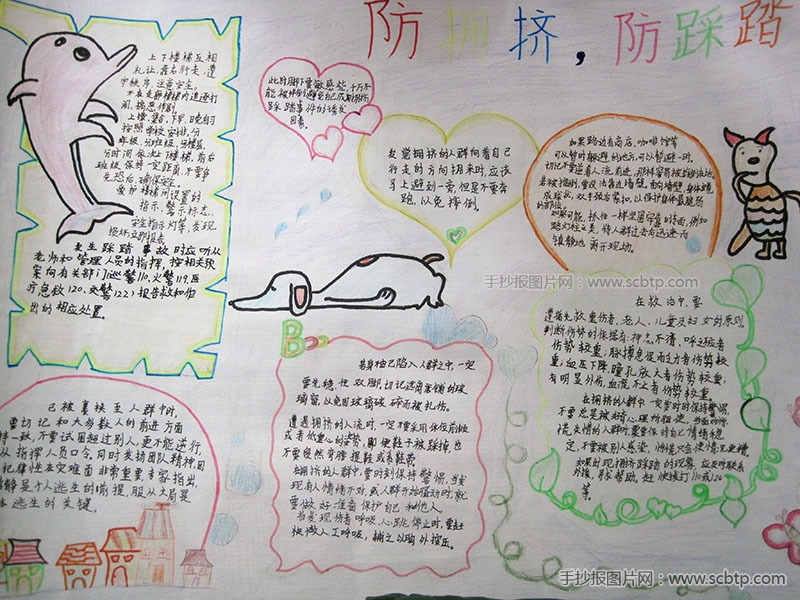 防拥挤，防踩踏
上下楼梯互相
礼让，靠右行走，遵
守秩序，注意安全。
不在走廊楼梯内追逐打
闹、搞恶作剧。
上操、集合、下早、晚自习
按照学校安排，分
年级、分班级、分楼层、
分时间有次上下楼梯，前后
班级保持一定距离，不要争
先恐后，确保安全。
爱护楼梯间设置的
指示、警示标志、
安全指示灯等，发现
损坏立即报告。
发生踩踏事故时应听从
老师和管理人员的指挥，按相关预
案向有关部门(匪警110、火警119、医
疗急救120、交警122)报告救和作
出的相应处置。
此时脚下要敏感些，千万不
能被绊倒，避免自己成为拥挤
踩踏事件的诱发
因素。
发觉拥挤的人群向着自己
行走的方向拥来时，应该
马上避到一旁，但是不要奔
跑，以免摔倒。
如果路边有商店、咖啡馆等
可以暂时躲避的地方，可以暂避一时。
切记不要逆着人流前进，那样容易被推倒在地。
若被推倒，要设法靠近墙壁。面向墙壁，身体蜷
成球状，双手在颈后紧扣，以保护身体最脆弱
的部位。
如果可能，抓住一样坚固牢靠的东西，例如
路灯柱之类，待人群过去后，迅速而
镇静地离开现场。
手抄报图片网：www.scbtp.com
在救治中，要
遵循先救重伤者、老人、儿童及妇女的原则。
判断伤势的依据有：神志不清、呼之不应者
伤势较重；脉搏急促而乏力者伤势较
重；血压下降、瞳孔放大者伤势较重；
有明显外伤，血流不止者伤势较重。
在拥挤的人群中，一定要时时保持警惕，
不要总是被好奇心理所驱使。当面对惊
慌失措的人群时，要保持自己情绪稳
定，不要被别人感染，惊慌只会使情况更糟。
如果出现拥挤踩踏的现象，应及时联系
外援，寻求帮助。赶快拨打110或120
等。
若身不由己陷入人群之中，一定
要先稳住双脚。切记远离店铺的玻
璃窗，以免因玻璃破碎而被扎伤。
遭遇拥挤的人流时，一定不要采用体位前倾
或者低重心的姿势，即便鞋子被踩掉，也
不要贸然弯腰提鞋或系鞋带。
在拥挤的人群中，要时刻保持警惕，当发
现有人情绪不对，或人群开始骚动时，就
要做好准备保护自己和他人。
当发现伤者呼吸、心跳停止时，要赶
快做人工呼吸，辅之以胸外按压。
己被裹挟至人群中时，
要切记和大多数人的前进方面
持一致，不要试图超过别人，更不能逆行，
从指挥人员口令。同时发扬团队精神，因
纪律性在灾难面非常重要，专家指出，
静是个人逃生的前提，服从大局是
体逃生的关键。
手抄报图片网：www.scbtp.com